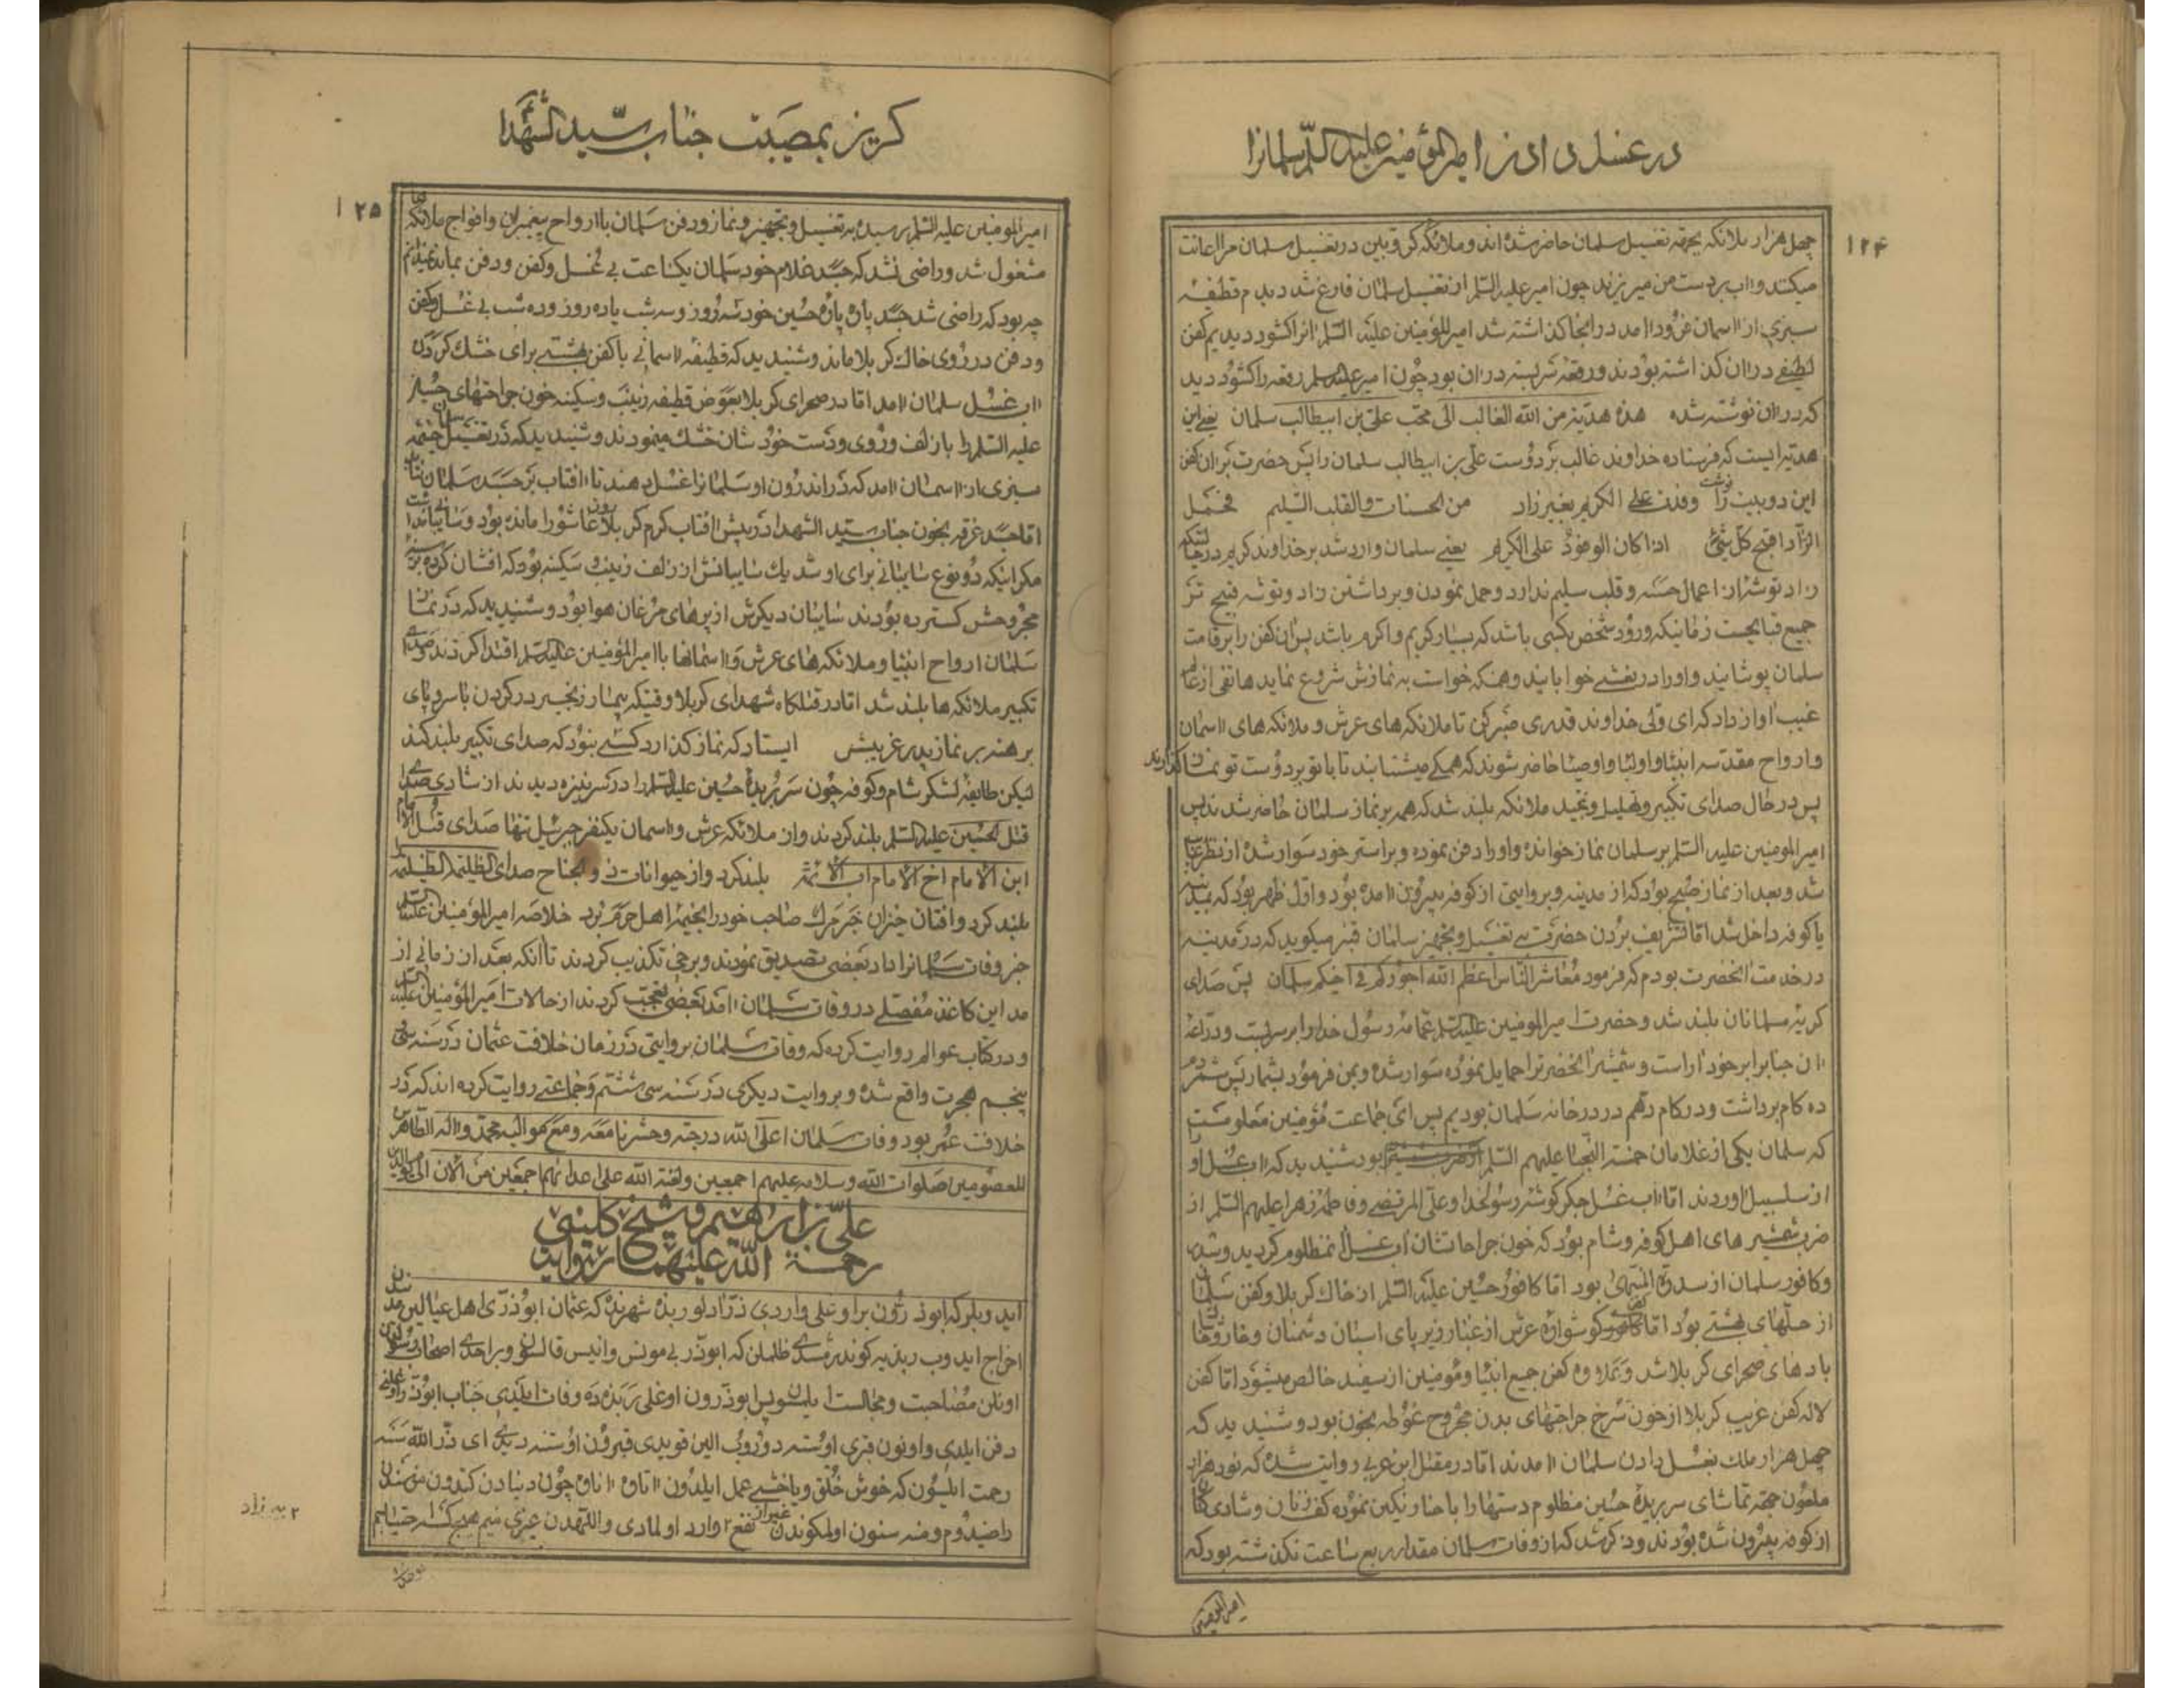 در غسل دادن امیرالمؤمنین علیه السلام سلمانرا
۱۲۴
چهل هزار ملائکه بجهة تغسیل سلمان حاضر شده اند و ملائکه کروبین در تغسیل سلمان مرا اعانت
میکند و اب بردست من میریزند چون امیر علیه السلام از تغسیل سلمان فارغ شد دیدم قطیفهٔ
سبزی از اسمان فرود امد در انجا کذاشته شد امیرالمؤمنین علیه السلام انرا کشود دیدیم کفن
لطیفی در ان کذاشته بودند و رقعهٔ سربسته در ان بود چون امیر علیه السلم رقعه را کشود دید
که در ان نوشته شده هذه هدیة من الله الغالب الی محب علی بن ابیطالب سلمان یعنی این
هدیه ایست که فرستاده خداوند غالب بر دوست علی بن ابیطالب سلمان را پس حضرت بر ان کفن
این دو بیت را نوشت وفدت علی الکریم بغیر زاد من الحسنات والقلب السلیم فحمل
الزاد اقبح کل شیئ اذا کان الوفود علی الکریم یعنی سلمان وارد شد بر خداوند کریم در حالتیکه
زاد توشه از اعمال حسنه و قلب سلیم ندارد و حمل نمودن و برداشتن زاد و توشه قبیح تر
جمیع قبایحست زمانیکه ورود شخص بکسی باشد که بسیار کریم و اکرم باشد پس ان کفن را بر قامت
سلمان پوشانید و اورا در نعشی خوابانید و همنکه خواست به نمازش شروع نماید هاتفی از عالم
غیب اواز داد که ای ولی خداوند قدری صبر کن تا ملائکه های عرش و ملائکه های اسمان
و ارواح مقدسه انبیا و اولیا و اوصیا حاضر شوند که همکی میشتابند تا با تو بر دوست تو نماز کذارند
پس در حال صدای تکبیر و تهلیل و تمجید ملائکه بلند شد که همه بر نماز سلمان حاضر شدند پس
امیرالمومنین علیه السلام بر سلمان نماز خوانده و اورا دفن نموده و براستر خود سوار شده از نظر غایب
شد و بعد از نماز صبح بود که از مدینه و بروایتی از کوفه بیرون امده بود و اول ظهر بود که بمدینه
یا کوفه داخل شد اما تشریف بردن حضرت به تغسیل و تجهیز سلمان قنبر میکوید که در مدینه
در خدمت انحضرت بودم که فرمود معاشر الناس اعظم الله اجورکم فی اخیکم سلمان پس صدای
کریه مسلمانان بلند شد و حضرت امیرالمومنین علیه السلم عمامه رسول خدا را بر سر بست و دراعهٔ
ان جناب را بر خود اراست و شمشیر انحضرت را حمایل نموده سوار شده و بمن فرمود بشمار پس شمردم
ده کام برداشت و در کام دهم در در خانه سلمان بودیم پس ای جماعت مؤمنین معلومست
که سلمان یکی از غلامان خمسة النجبا علیهم السلم بود شنیدید که اب غسل او
از سلسبیل اوردند اما اب غسل جکر کوشهٔ رسول خدا و علی المرتضی و فاطمه زهرا علیهم السلم از
ضرب شمشیر های اهل کوفه و شام بود که خون جراحاتشان اب غسل انمظلوم کردید و سدر
و کافور سلمان از سدرة المنتهی بود اما کافور حسین علیه السلم از خاک کربلا و کفن سلمان
از حلهای بهشتی بود اما کفن کوشوارهٔ عرش از غبار زیر پای اسبان دشمنان و خار و خاشاک
بادهای صحرای کربلا شد و بعلاوه کفن جمیع انبیا و مؤمنین از سفید خالص میشود اما کفن
لاله کفن غریب کربلا از خون سرخ جراحتهای بدن مجروح غوطه بخون بود و شنیدید که
چهل هزار ملک بغسل دادن سلمان امدند اما در مقتل ابن عربی روایت شده که نود هزار
ملعون بجهة تماشای سر بریدهٔ حسین مظلوم دستهارا با حنا رنکین نموده کف زنان و شادی کنان
از کوفه بیرون شده بودند و ذکر شد که از وفات سلمان مقدار ربع ساعت نکذشته بود که
امیرالمومنین
کریز بمصیبت جناب سید الشهدا
۱۲۵
امیرالمومنین علیه السلم رسیده به تغسیل و تجهیز و نماز و دفن سلمان با ارواح پیغمبران و افواج ملائکه
مشغول شد و راضی نشد که جسد غلام خود سلمان یکساعت بی غسل و کفن و دفن بماند نمیدانم
چه بود که راضی شد جسد پاره پاره حسین خود سه روز و سه شب یا ده روز و ده شب بی غسل و کفن
و دفن در روی خاک کربلا ماند و شنیدید که قطیفهٔ اسمانی با کفن بهشتی برای خشک کردن
اب غسل سلمان امد اما در صحرای کربلا بعوض قطیفه زینب و سکینه خون جراحتهای حسین
علیه السلم را با زلف و روی و دست خودشان خشک مینمودند و شنیدید که در تغسیل سلمان خیمه
سبزی از اسمان امد که در اندرون او سلمانرا غسل بدهند تا افتاب بر جسد سلمان نتابد
اما جسد غرقه بخون جناب سید الشهدا در پیش افتاب کرم کربلا روز عاشورا مانده بود و سایبانی نداشت
مکر اینکه دو نوع سایبانی برای او شد یک سایبانش از زلف زینب و سکینه بود که افشان کرده بر سینه
مجروحش کسترده بودند سایبان دیکرش از پرهای مرغان هوا بود و شنیدید که در نماز
سلمان ارواح انبیا و ملائکه های عرش و اسمانها با امیرالمؤمنین علیه السلم اقتدا کردند و صدای
تکبیر ملائکه ها بلند شد اما در قتلکاه شهدای کربلا وقتیکه بیمار زنجیر در کردن با سر و پای
برهنه بر نماز پدر غریبش ایستاد که نماز کذارد کسی نبود که صدای تکبیر بلند کند
لیکن طایفهٔ لشکر شام و کوفه چون سر بریدهٔ حسین علیه السلم را در سر نیزه دیدند از شادی صدای
قتل الحسین علیه السلم بلند کردند و از ملائکه عرش و اسمان یکنفر جبرئیل تنها صدای قتل الامام
ابن الامام اخ الامام اب الائمة بلند کرد و از حیوانات ذوالجناح صدای الظلیمة الظلیمة
بلند کرد و افتان خیزان خبر مرک صاحب خود را بخیمهٔ اهل حرم برد خلاصه امیرالمؤمنین علیه السلم
خبر وفات سلمانرا داد بعضی تصدیق نمودند و برخی تکذیب کردند تا انکه بعد از زمانی از
مداین کاغذ مفصلی در وفات سلمان امد بعضی تعجب کردند از حالات امیرالمؤمنین علیه السلم
و در کتاب عوالم روایت کرده که وفات سلمان بروایتی در زمان خلافت عثمان در سنه سی
پنجم هجرت واقع شده و بروایت دیکری در سنه سی ششم و جماعتی روایت کرده اند که در
خلافت عمر بود وفات سلمان اعلی الله درجته و حشرنا معه و مع موالیه محمد و اله الطاهرین
المعصومین صلوات الله و سلامه علیهم اجمعین و لعنة الله علی اعدائهم اجمعین من الان الی یوم الدین
علی بن ابراهیم و شیخ کلینی
رحمة الله علیهما روایت
ایدوبلر که ابوذرون براوغلی واردی ذر ادلو ربذه شهرنده که عثمان ابوذری اهل عیالیله مدینه دن
اخراج ایدوب ربذیه کوندرمشدی ظلمیلن که ابوذر بی مونس و انیس قالسون و براحدی اصحاب رسولدن
اونلن مصاحبت و مجالست ایلمسون پس ابوذرون اوغلی ربذه ده وفات ایلدی جناب ابوذر اوغلنی
دفن ایلدی و اونون قبری اوسته دوروب الین قویدی قبرون اوستنه دیدی ای ذر الله سنه
رحمت ایلسون که خوش خلق و یاخشی عمل ایلدون اتاوه اناوه چون دنیادن کتدون من سندن
راضیدوم و منه سنون اولمکوندن غیر از نفع وارد اولمادی و اللهدن غیری منیم هیچ کسه احتیاجیم
۲ به زاد
یوخدر